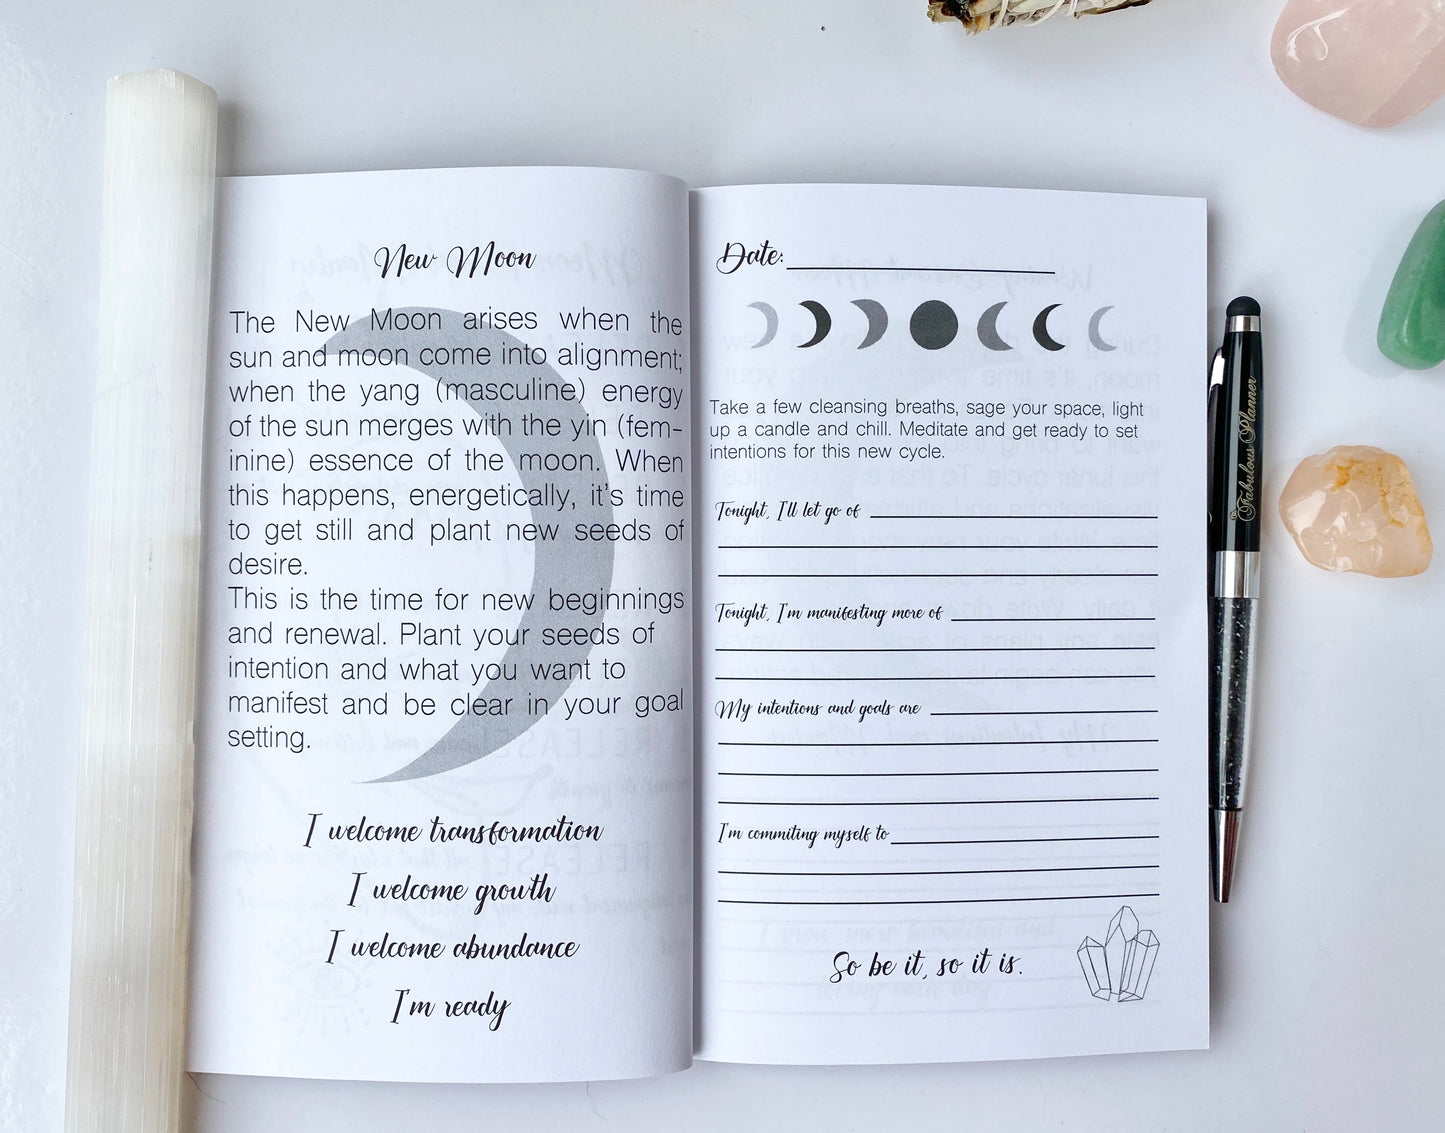 New Moon
The New Moon arises when the
sun and moon come into alignment;
when the yang (masculine) energy
of the sun merges with the yin (fem-
inine) essence of the moon. When
this happens, energetically, it's time
to get still and plant new seeds of
desire.
This is the time for new beginnings
and renewal. Plant your seeds of
intention and what you want to
manifest and be clear in your goal
setting.
I welcome transformation
I welcome growth
I welcome abundance
I'm ready
Date:
Take a few cleansing breaths, sage your space, light
up a candle and chill. Meditate and get ready to set
intentions for this new cycle.
Tonight, I'll let go of
Tonight, I'm manifesting more of
My intentions and goals are
I'm commiting myself to
So be it, so it is.
Fabulous Planner